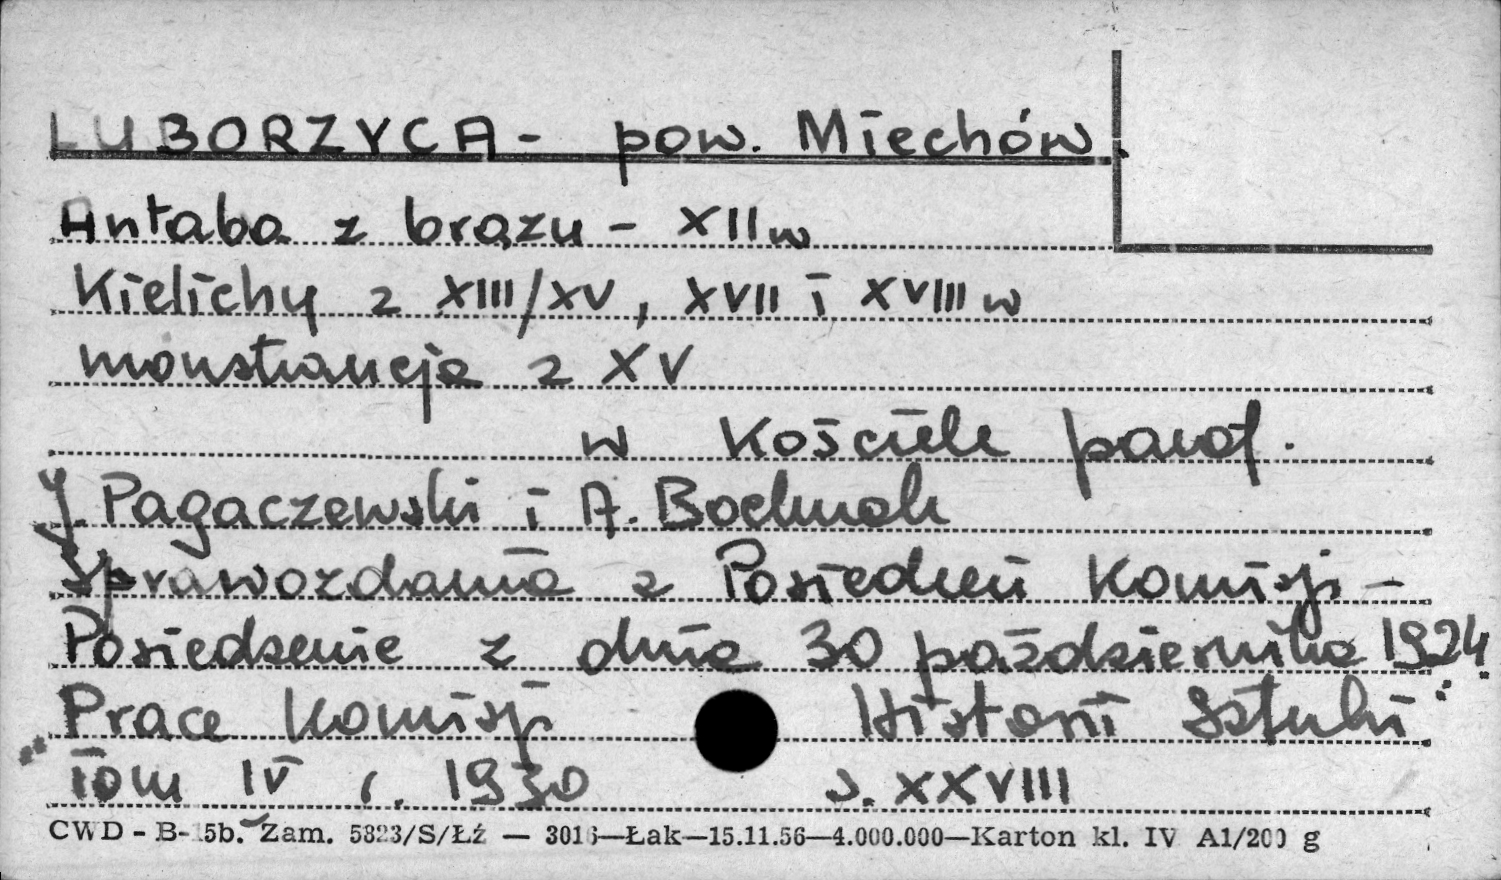 LUBORZYCA - pow. Miechów.
Antaba z brązu - XII w
Kielichy z XIII/XV, XVII i XVIII w
monstrancja z XV
w Kościele paraf.
J. Pagaczewski i A. Bochnak
Sprawozdania z Posiedzeń Komisji -
Posiedzenie z dnia 30 października 1924.
Prace Komisji Historii Sztuki"
Tom IV r. 1930 s. XXVIII
CWD - B-15b. Zam. 5823/S/Łź — 3016—Łak—15.11.56—4.000.000—Karton kl. IV A1/200 g